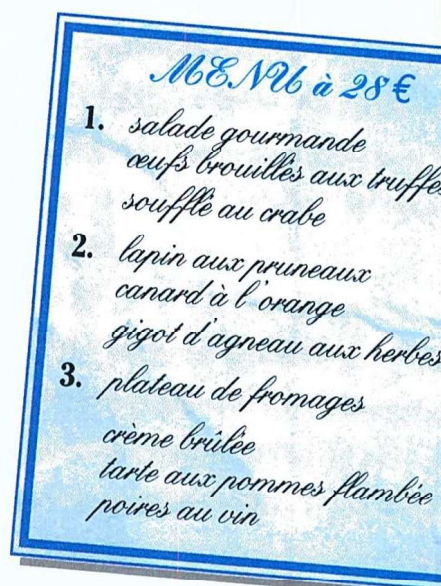 MENU à 28 €
1. salade gourmande
œufs brouillés aux truffes
soufflé au crabe
2. lapin aux pruneaux
canard à l'orange
gigot d'agneau aux herbes
3. plateau de fromages
crème brûlée
tarte aux pommes flambée
poires au vin